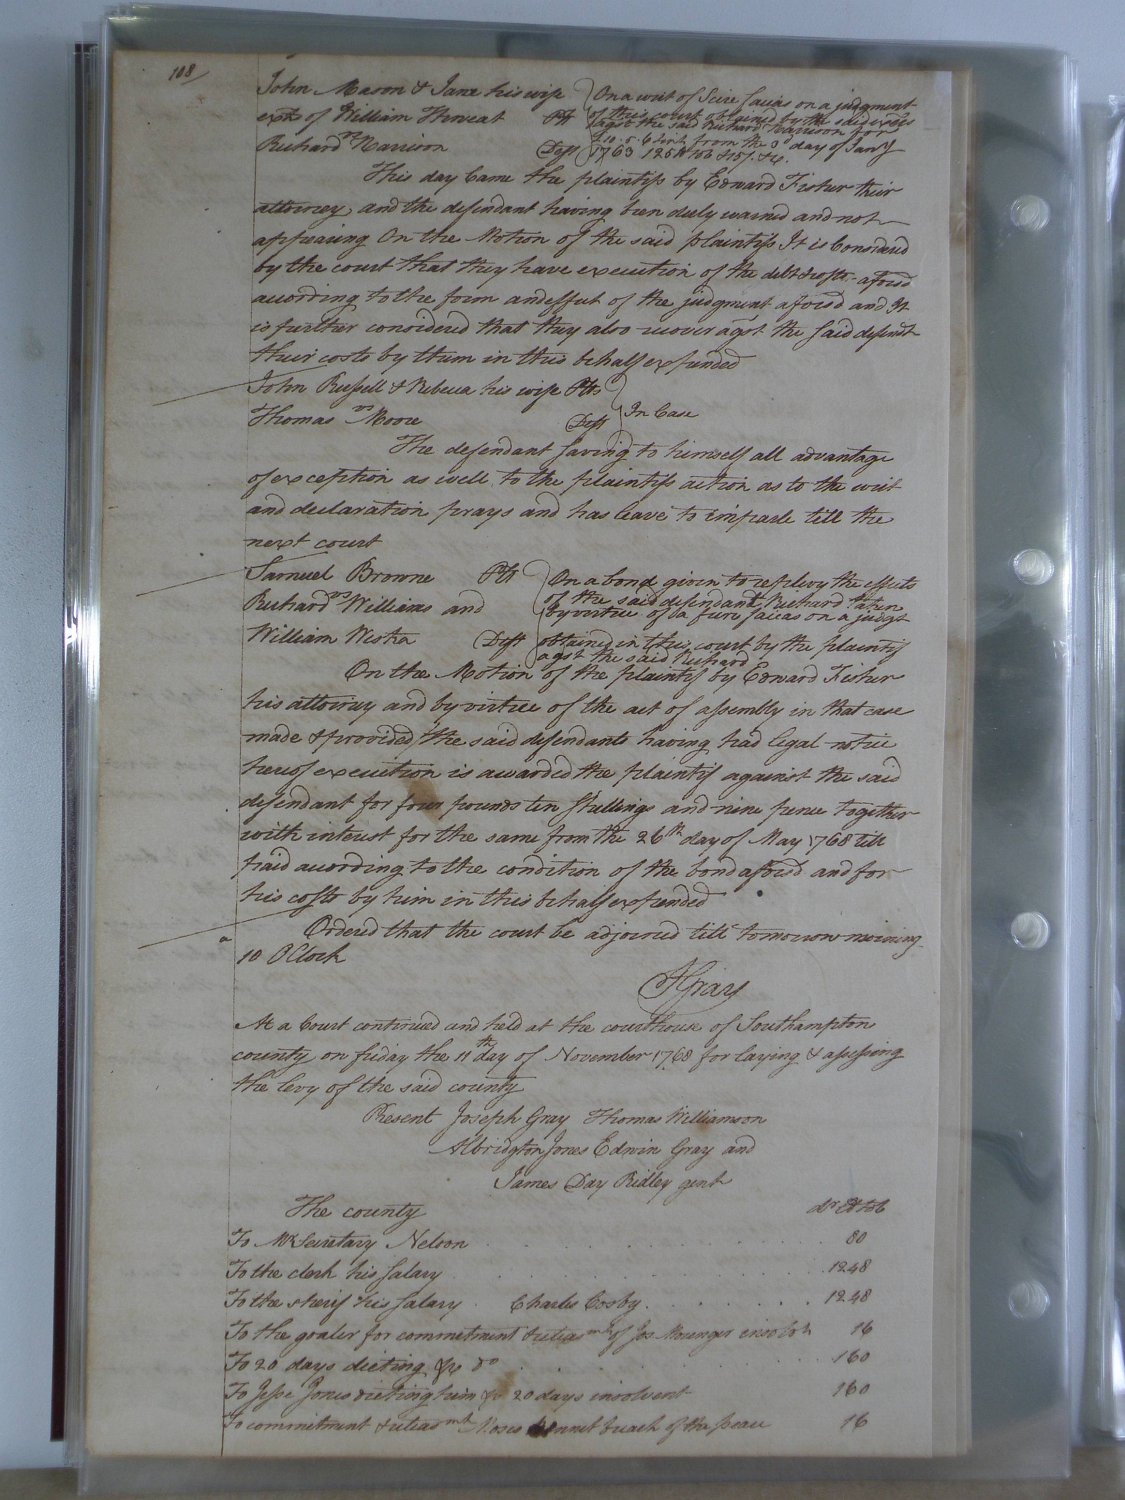 108/
John Mason & Jane his wife
exrs of William Thweat Plt
Richard vs Harrison Deft
On a writ of Scire facias on a judgment
of this court obtained by the said exrs
agst the said Richard Harrison for
from the 3d day of Janry
1763
This day Came the plaintifs by Edward Fisher their
attorney and the defendant having been duly warned and not
appearing On the Motion of the said plaintifs It is Considered
by the court that they have execution of the debt & costs aforesd
according to the form and effect of the judgment aforesd and It
is further considered that they also recover agst the said defendt
their costs by them in this behalf expended
John Russell & Rebecca his wife Plts
Thomas vs Moore Deft
In Case
The defendant saving to himself all advantage
of exception as well to the plaintifs action as to the writ
and declaration prays and has leave to imparle till the
next court
Samuel Browne Plt
Richard vs Williams and
William Westra Deft
On a bond given to replevy the effects
of the said defendant Richard taken
by virtue of a fiere facias on a judgt
obtained in this court by the plaintif
agst the said Richard
On the Motion of the plaintif by Edward Fisher
his attorney and by virtue of the act of assembly in that case
made & provided the said defendants having had legal notice
hereof execution is awarded the plaintif against the said
defendant for four pounds ten shillings and nine pence together
with interest for the same from the 26th day of May 1768 till
paid according to the condition of the bond aforesd and for
his costs by him in this behalf expended
Ordered that the court be adjorned till tomorrow morning
10 OClock
JGray
At a Court continued and held at the courthouse of Southampton
county on friday the 11th day of November 1768 for laying & assessing
the levy of the said county
Present Joseph Gray Thomas Williamson
Albridgton Jones Edwin Gray and
James Day Ridley gent
The county dr
To Mr Secretary Nelson 80
To the clerk his salary 1248
To the sherif his salary Charles Cosby 1248
To the goaler for commitment & releasmt of Jos insolvt 16
To 20 days dieting &c do 160
To Jesse Jones dieting him &c 20 days insolvent 160
To commitment & releasmt breach of the peace 16